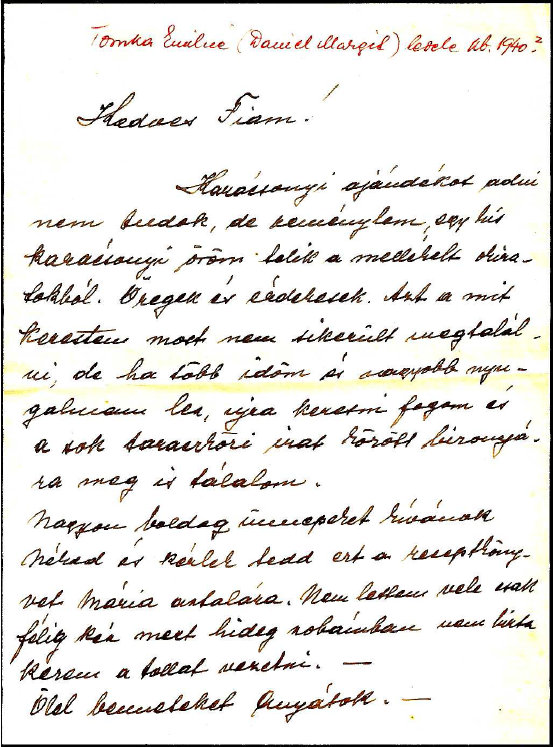 Tomka Emilné (Dániel Margit) levele kb. 1940?
Kedves Fiam!
Karácsonyi ajándékot adni
nem tudok, de remênylem, egy kis
karácsonyi öröm telik a mellékelt okira-
tokból. Öregek és érdekesek. Azt a mit
kerestem most nem sikerült megtalál-
ni, de ha több időm és nagyobb nyu-
galmam lesz, ujra keresni fogom és
a sok taraszköri irat között bizonyá-
ra meg is tálalom.
Nagyon boldog ünnepeket kívánok
Néked és kérlek tedd ezt a receptköny-
vet Mária asztalára. Nem lettem vele csak
félig kész mert hideg szobáimban nem birta
kezem a tollat vezetni. —
Ölel benneteket Anyátok. —